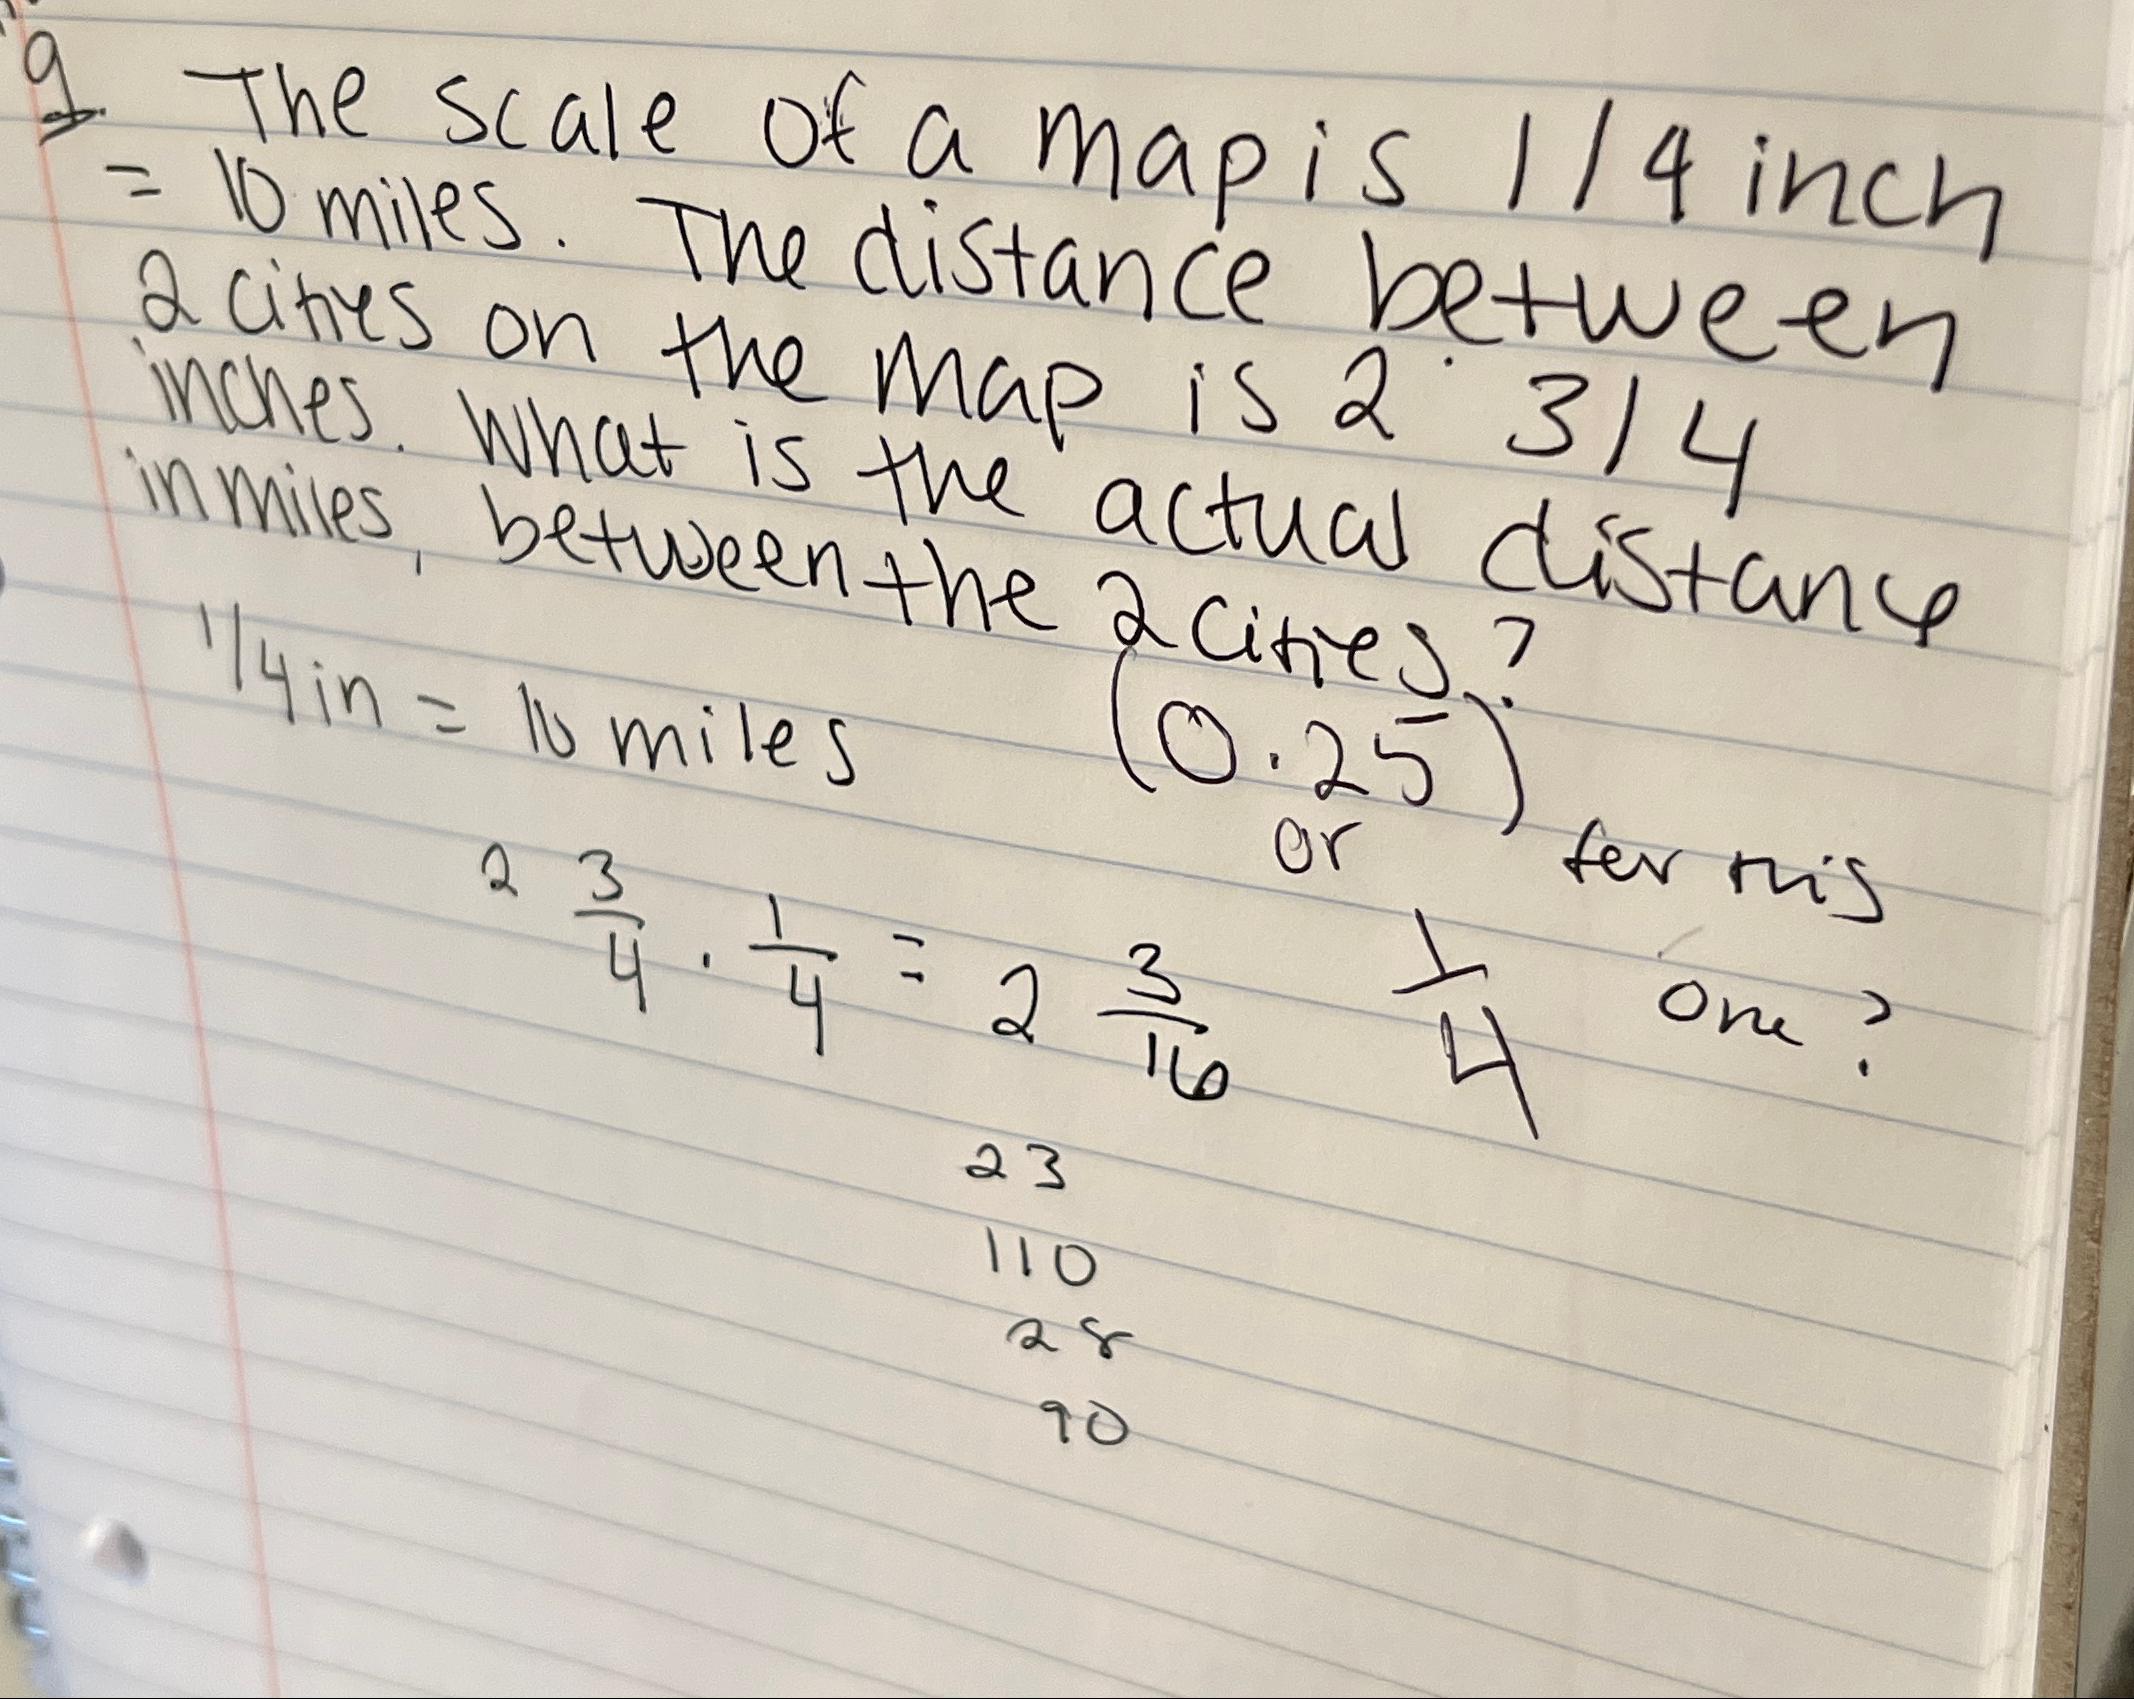 9. The scale of a map is 1/4 inch
= 10 miles. The distance between
2 cities on the map is 2 3/4
inches. What is the actual distance
in miles, between the 2 cities?
1/4 in = 10 miles (0.25)
or for this
2 3/4 · 1/4 = 2 3/16 1/4 one?
23
110
28
90